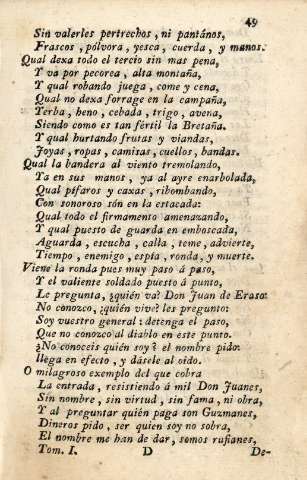 49
Sin valerles pertrechos, ni pantános,
Frascos, pólvora, yesca, cuerda, y manos.
Qual dexa todo el tercio sin mas pena,
Y va por pecorea, alta montaña,
Y qual robando juega, come y cena,
Qual no dexa forrage en la campaña,
Yerba, heno, cebada, trigo, avena,
Siendo como es tan fértil la Bretaña.
Y qual hurtando frutas y viandas,
Joyas, ropas, camisas, cuellos, bandas.
Qual la bandera al viento tremolando,
Ya en sus manos, ya al ayre enarbolada,
Qual pífaros y caxas, ribombando,
Con sonoroso són en la estacada:
Qual todo el firmamento amenazando,
Y qual puesto de guarda en emboscada,
Aguarda, escucha, calla, teme, advierte,
Tiempo, enemigo, espia, ronda, y muerte.
Viene la ronda pues muy paso á paso,
Y el valiente soldado puesto á punto,
Le pregunta, ¿quién va? Don Juan de Eraso:
No conozco, ¿quién vive? les pregunto:
Soy vuestro general: detenga el paso,
Que no conozco al diablo en este punto.
¿No conoceis quién soy? el nombre pido:
llega en efecto, y dásele al oido.
O milagroso exemplo del que cobra
La entrada, resistiendo á mil Don Juanes,
Sin nombre, sin virtud, sin fama, ni obra,
Y al preguntar quién paga son Guzmanes,
Dineros pido, ser quien soy no sobra,
El nombre me han de dar, somos rufianes,
Tom. I. D De-